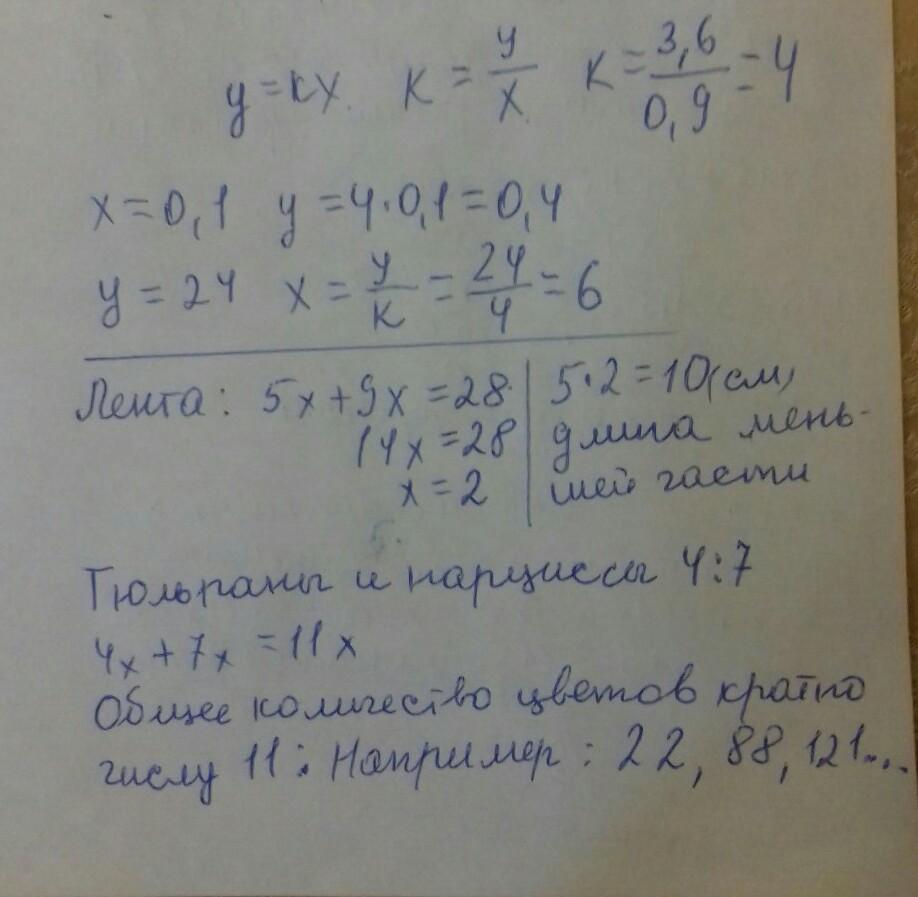 y = kx. K = y/x K = 3,6/0,9 = 4
x = 0,1 y = 4·0,1 = 0,4
y = 24 x = y/K = 24/4 = 6
Лента: 5x + 9x = 28
14x = 28
x = 2
5·2 = 10 (см)
длина мень-
шей части
Тюльпаны и нарциссы 4:7
4x + 7x = 11x
Общее количество цветов кратно
числу 11: Например: 22, 88, 121...